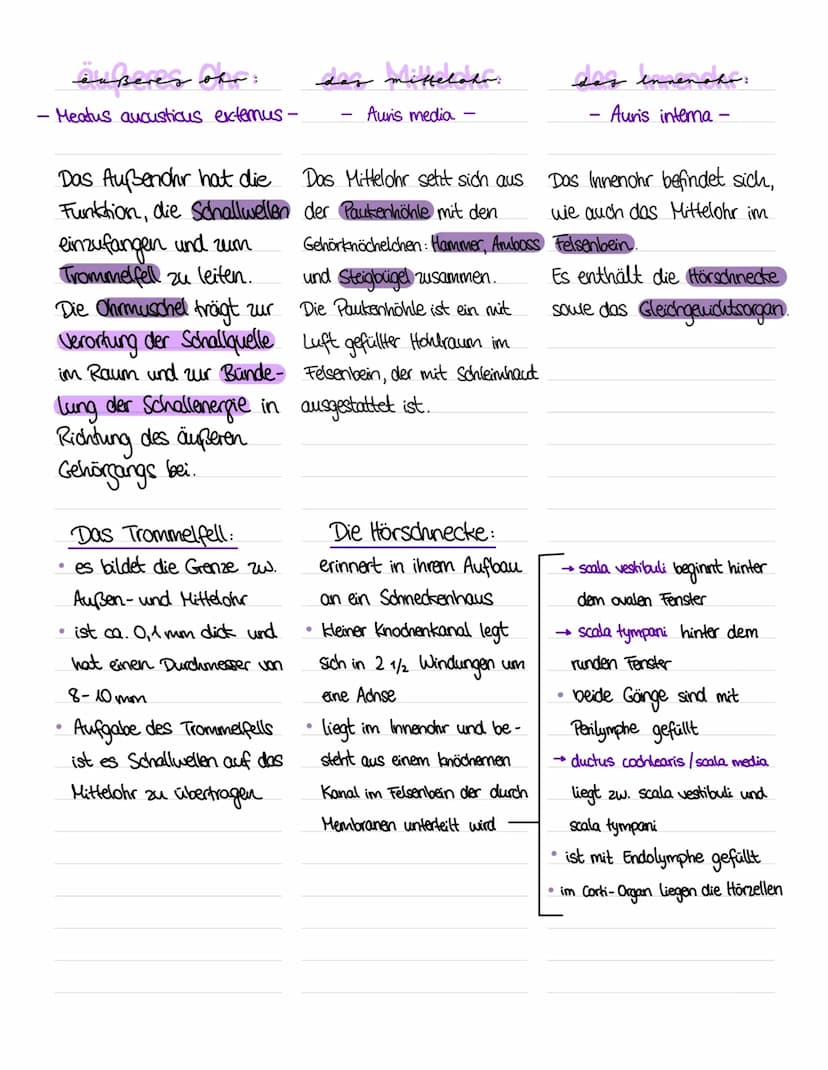 äußeres Ohr:
- Meatus aucusticus externus -
Das Außenohr hat die
Funktion, die Schallwellen
einzufangen und zum
Trommelfell zu leiten.
Die Ohrmuschel trägt zur
Verortung der Schallquelle
im Raum und zur Bünde-
lung der Schallenergie in
Richtung des äußeren
Gehörgangs bei.
das Mittelohr:
- Auris media -
Das Mittelohr setzt sich aus
der Paukenhöhle mit den
Gehörknöchelchen: Hammer, Amboss
und Steigbügel zusammen.
Die Paukenhöhle ist ein mit
Luft gefüllter Hohlraum im
Felsenbein, der mit Schleimhaut
ausgestattet ist.
das Innenohr:
- Auris interna -
Das Innenohr befindet sich,
wie auch das Mittelohr im
Felsenbein.
Es enthält die Hörschnecke
sowie das Gleichgewichtsorgan.
Das Trommelfell:
• es bildet die Grenze zw.
Außen- und Mittelohr
• ist ca. 0,1 mm dick und
hat einen Durchmesser von
8-10 mm
• Aufgabe des Trommelfells
ist es Schallwellen auf das
Mittelohr zu übertragen
Die Hörschnecke:
erinnert in ihrem Aufbau
an ein Schneckenhaus
• kleiner Knochenkanal legt
sich in 2 1/2 Windungen um
eine Achse
• liegt im Innenohr und be-
steht aus einem knöchernen
Kanal im Felsenbein der durch
Membranen unterteilt wird
→ scala vestibuli beginnt hinter
dem ovalen Fenster
→ scala tympani hinter dem
runden Fenster
• beide Gänge sind mit
Perilymphe gefüllt
→ ductus cochlearis / scala media
liegt zw. scala vestibuli und
scala tympani
• ist mit Endolymphe gefüllt
• im Corti-Organ liegen die Hörzellen